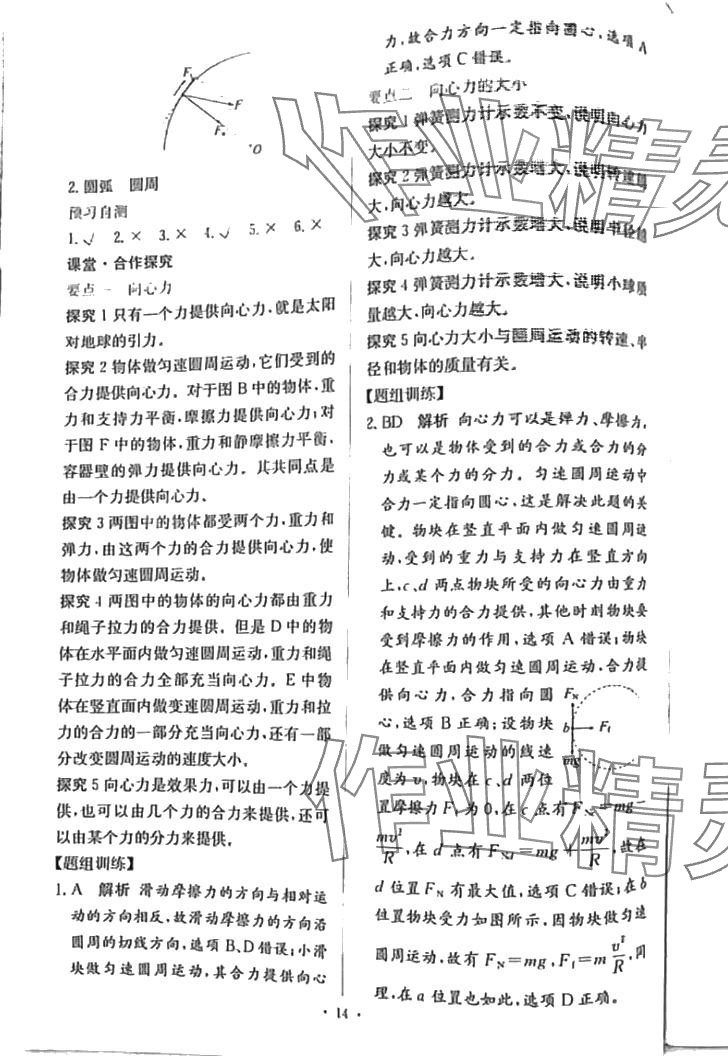 F₁
F
F₂
O
2. 圆弧 圆周
预习自测
1. √ 2. × 3. × 4. √ 5. × 6. ×
课堂·合作探究
要点一 向心力
探究 1 只有一个力提供向心力,就是太阳
对地球的引力。
探究 2 物体做匀速圆周运动,它们受到的
合力提供向心力。对于图 B 中的物体,重
力和支持力平衡,摩擦力提供向心力;对
于图 F 中的物体,重力和静摩擦力平衡,
容器壁的弹力提供向心力。其共同点是
由一个力提供向心力。
探究 3 两图中的物体都受两个力,重力和
弹力,由这两个力的合力提供向心力,使
物体做匀速圆周运动。
探究 4 两图中的物体的向心力都由重力
和绳子拉力的合力提供。但是 D 中的物
体在水平面内做匀速圆周运动,重力和绳
子拉力的合力全部充当向心力。E 中物
体在竖直面内做变速圆周运动,重力和拉
力的合力的一部分充当向心力,还有一部
分改变圆周运动的速度大小。
探究 5 向心力是效果力,可以由一个力提
供,也可以由几个力的合力来提供,还可
以由某个力的分力来提供。
【题组训练】
1. A 解析 滑动摩擦力的方向与相对运
动的方向相反,故滑动摩擦力的方向沿
圆周的切线方向,选项 B、D 错误;小滑
块做匀速圆周运动,其合力提供向心
力,故合力方向一定指向圆心,选项 A
正确,选项 C 错误。
要点二 向心力的大小
探究 1 弹簧测力计示数不变,说明向心力
大小不变。
探究 2 弹簧测力计示数增大,说明转速越
大,向心力越大。
探究 3 弹簧测力计示数增大,说明半径越
大,向心力越大。
探究 4 弹簧测力计示数增大,说明小球质
量越大,向心力越大。
探究 5 向心力大小与圆周运动的转速、半
径和物体的质量有关。
【题组训练】
2. BD 解析 向心力可以是弹力、摩擦力,
也可以是物体受到的合力或合力的分
力或某个力的分力。匀速圆周运动中
合力一定指向圆心,这是解决此题的关
键。物块在竖直平面内做匀速圆周运
动,受到的重力与支持力在竖直方向
上,c、d 两点物块所受的向心力由重力
和支持力的合力提供,其他时刻物块要
受到摩擦力的作用,选项 A 错误;物块
在竖直平面内做匀速圆周运动,合力提
供向心力,合力指向圆
心,选项 B 正确;设物块
做匀速圆周运动的线速
度为 v,物块在 c、d 两位
置摩擦力 Ff 为 0,在 c 点有 FN=mg−
mv²/R,在 d 点有 FNd=mg+mv²/R,故在
d 位置 FN 有最大值,选项 C 错误;在 b
位置物块受力如图所示,因物块做匀速
圆周运动,故有 FN=mg,Ff=m v²/R,同
理,在 a 位置也如此,选项 D 正确。
FN
b
Ff
mg
· 14 ·
作业精灵
作业精灵